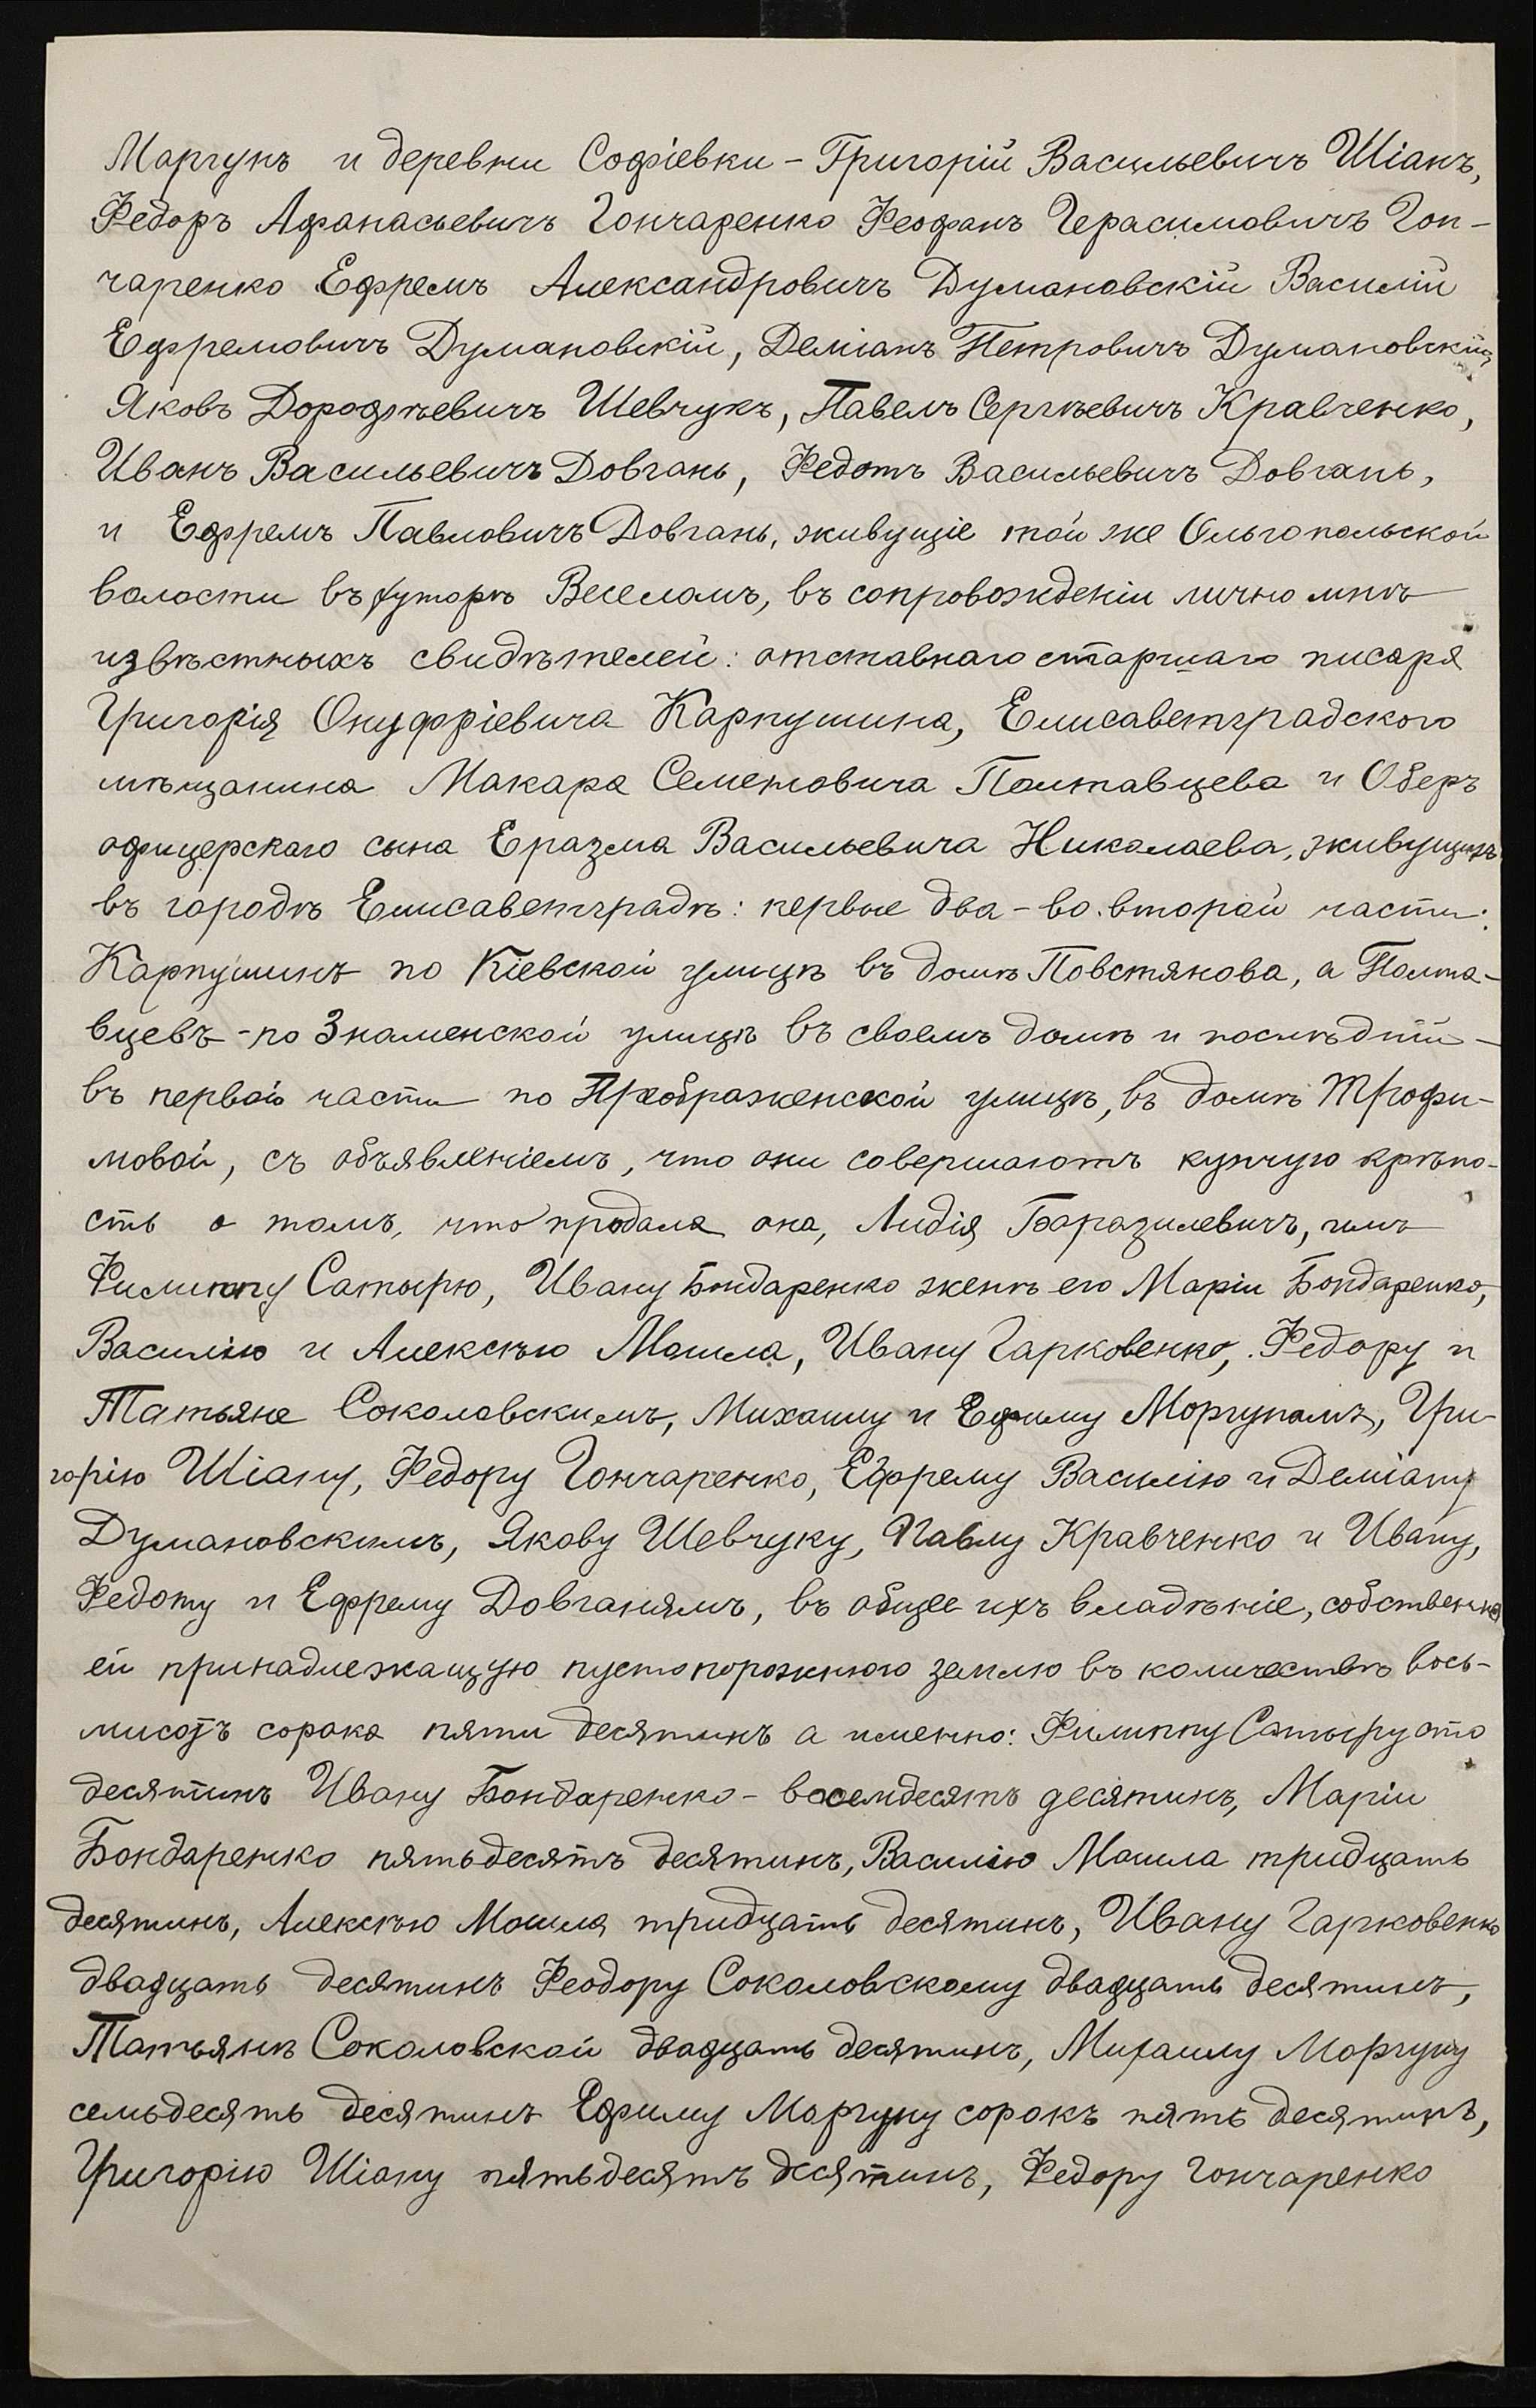 Маргунъ и деревни Софіевки - Григорій Васильевичъ Шіанъ,
Федоръ Афанасьевичъ Гончаренко Феофанъ Герасимовичъ Гон-
чаренко Ефремъ Александровичъ Думановскій Василій
Ефремовичъ Думановскій, Деміанъ Петровичъ Думановскій,
Яковъ Дорофѣевичъ Шевчукъ, Павелъ Сергѣевичъ Кравченко,
Иванъ Васильевичъ Довгань, Федотъ Васильевичъ Довгань,
и Ефремъ Павловичъ Довгань, живущіе той же Ольгопольской
волости въ хуторѣ Веселомъ, въ сопровожденіи лично мнѣ
извѣстныхъ свидѣтелей: отставнаго старшаго писаря
Григорія Онуфріевича Карпушина, Елисаветградского
мѣщанина Макара Семеновича Полтавцева и Оберъ
офицерскаго сына Еразма Васильевича Николаева, живущихъ
въ городѣ Елисаветградѣ: первые два - во второй части:
Карпушинъ по Кіевской улицѣ въ домѣ Повстянова, а Полта-
вцевъ - по Знаменской улицѣ въ своемъ домѣ и послѣдній -
въ первой части по Преображенской улицѣ, въ домѣ Трофи-
мовой, съ объявленіемъ, что они совершаютъ купчую крѣпо-
сть о томъ, что продала она, Лидія Баразилевичъ, имъ
Филиппу Сатырю, Ивану Бондаренко женѣ его Маріи Бондаренко,
Василію и Алексѣю Мошла, Ивану Гарковенко, Федору и
Татьяне Соколовскимъ, Михаилу и Ефиму Моргунамъ, Гри-
горію Шіану, Федору Гончаренко, Ефрему Василію и Деміану
Думановскимъ, Якову Шевчуку, Павлу Кравченко и Ивану,
Федоту и Ефрему Довганямъ, въ общее ихъ владѣніе, собственно
ей принадлежащую пустопорожнюю землю въ количествѣ вось-
мисотъ сорока пяти десятинъ а именно: Филиппу Сатыру сто
десятинъ Ивану Бондаренко - восемдесятъ десятинъ, Маріи
Бондаренко пятьдесятъ десятинъ, Василію Мошла тридцать
десятинъ, Алексѣю Мошла тридцать десятинъ, Ивану Гарковенко
двадцать десятинъ Феодору Соколовскому двадцать десятинъ,
Татьянѣ Соколовской двадцать десятинъ, Михаилу Моргуну
семьдесятъ десятинъ Ефиму Маргуну сорокъ пять десятинъ,
Григорію Шіану пятьдесятъ десятинъ, Федору Гончаренко